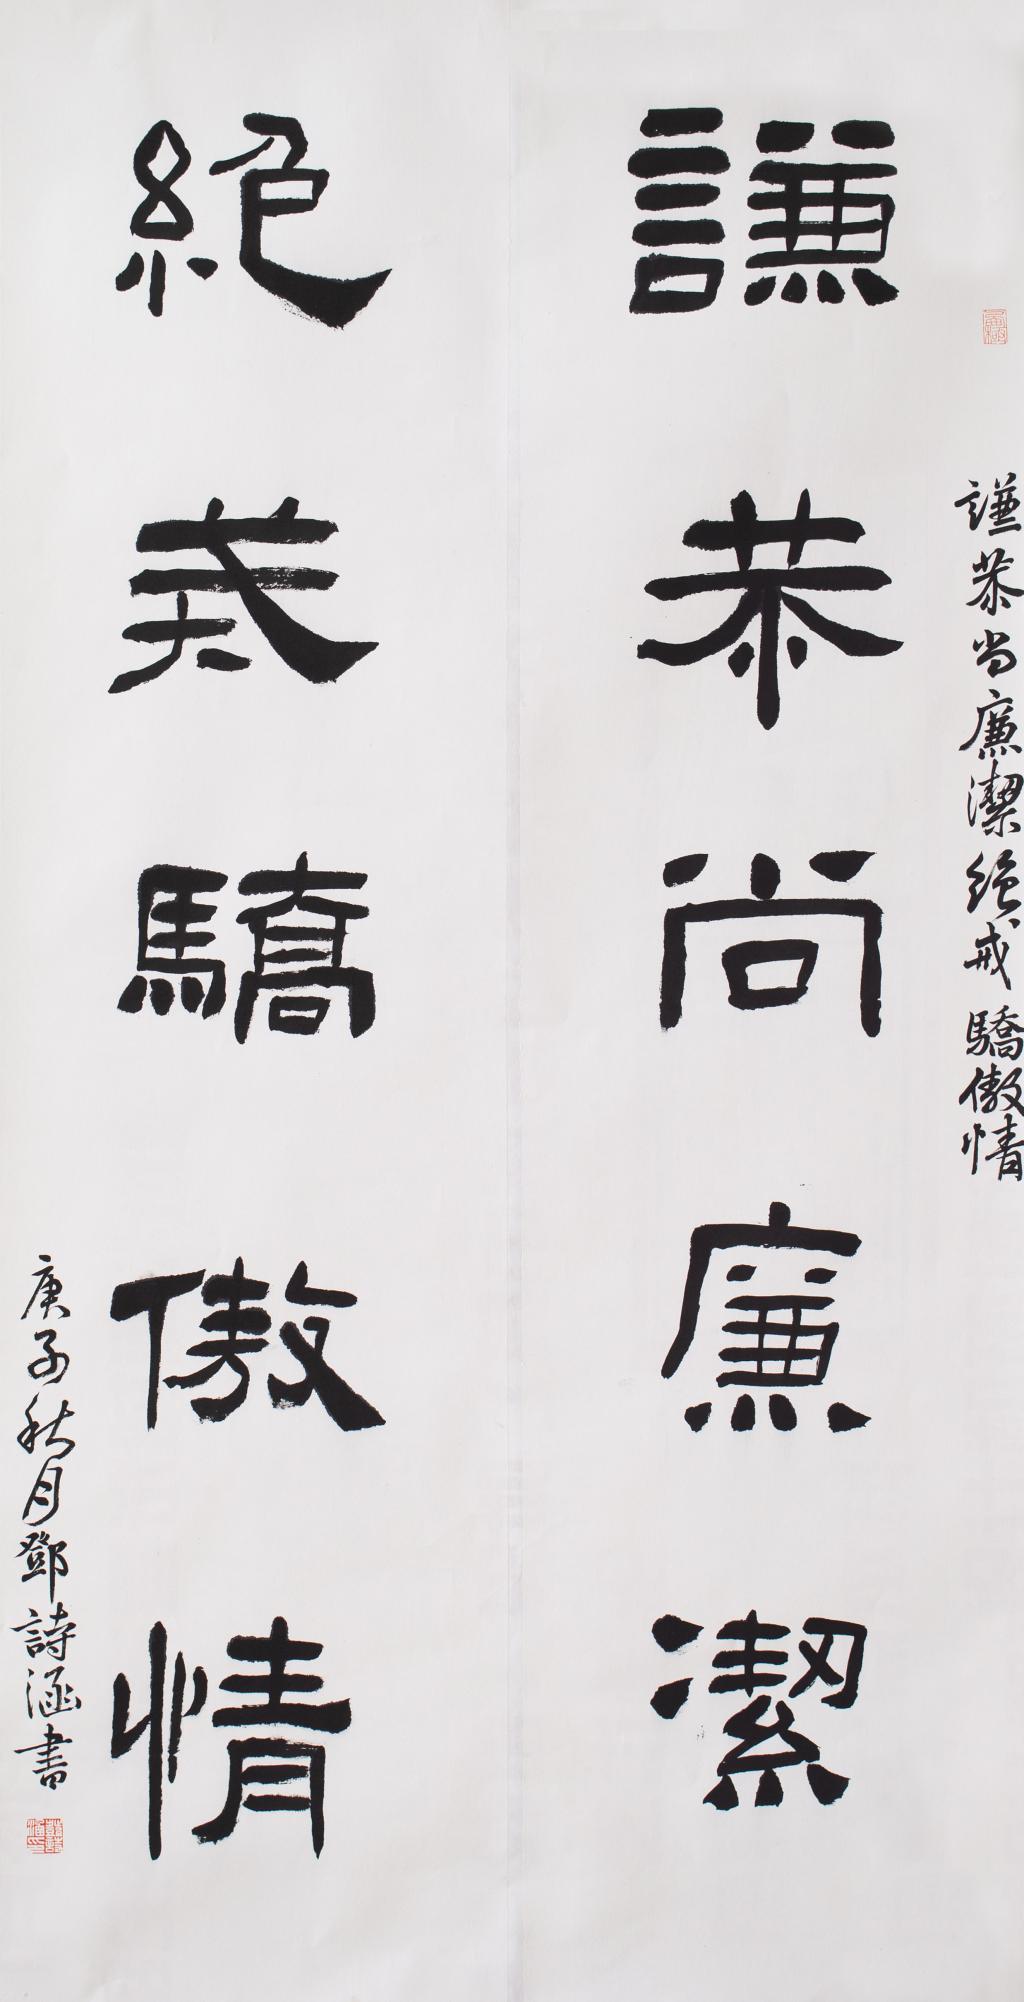 謙恭尚廉潔
絕戒驕傲情
謙恭尚廉潔絕戒驕傲情
庚子秋月鄧詩涵書